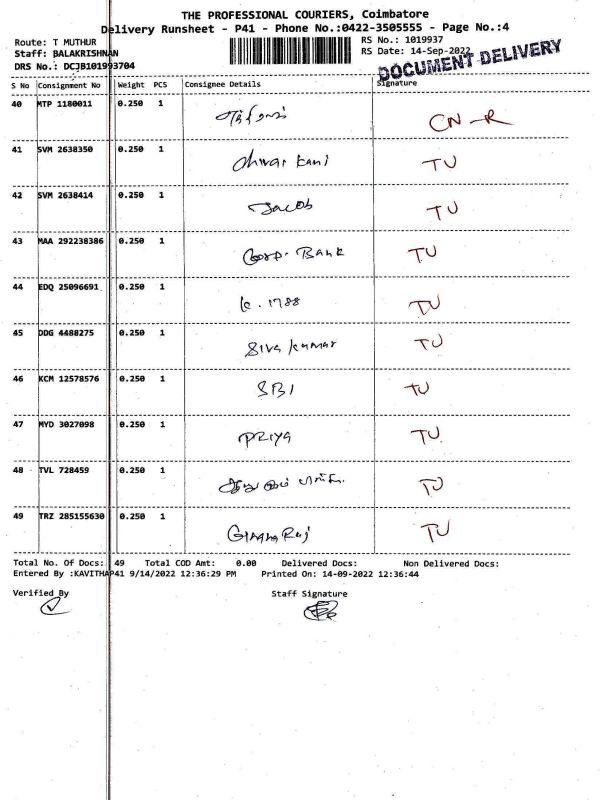 THE PROFESSIONAL COURIERS, Coimbatore
Delivery Runsheet - P41 - Phone No.:0422-3505555 - Page No.:4
Route: T MUTHUR
RS No.: 1019937
Staff: BALAKRISHNAN
RS Date: 14-Sep-2022
DRS No.: DCJB101993704
DOCUMENT DELIVERY
S No Consignment No Weight PCS Consignee Details Signature
40 MTP 1180011 0.250 1 CN-R
41 SVM 2638350 0.250 1 Kani TU
42 SVM 2638414 0.250 1 Jacob TU
43 MAA 292238386 0.250 1 Corp. Bank TU
44 EDQ 25096691 0.250 1 1788 TU
45 DDG 4488275 0.250 1 Siva kumar TU
46 KCM 12578576 0.250 1 SBI TU
47 MYD 3027098 0.250 1 PRIYA TU
48 TVL 728459 0.250 1 TU
49 TRZ 285155630 0.250 1 TU
Total No. Of Docs: 49 Total COD Amt: 0.00 Delivered Docs: Non Delivered Docs:
Entered By :KAVITHAP41 9/14/2022 12:36:29 PM Printed On: 14-09-2022 12:36:44
Verified By Staff Signature